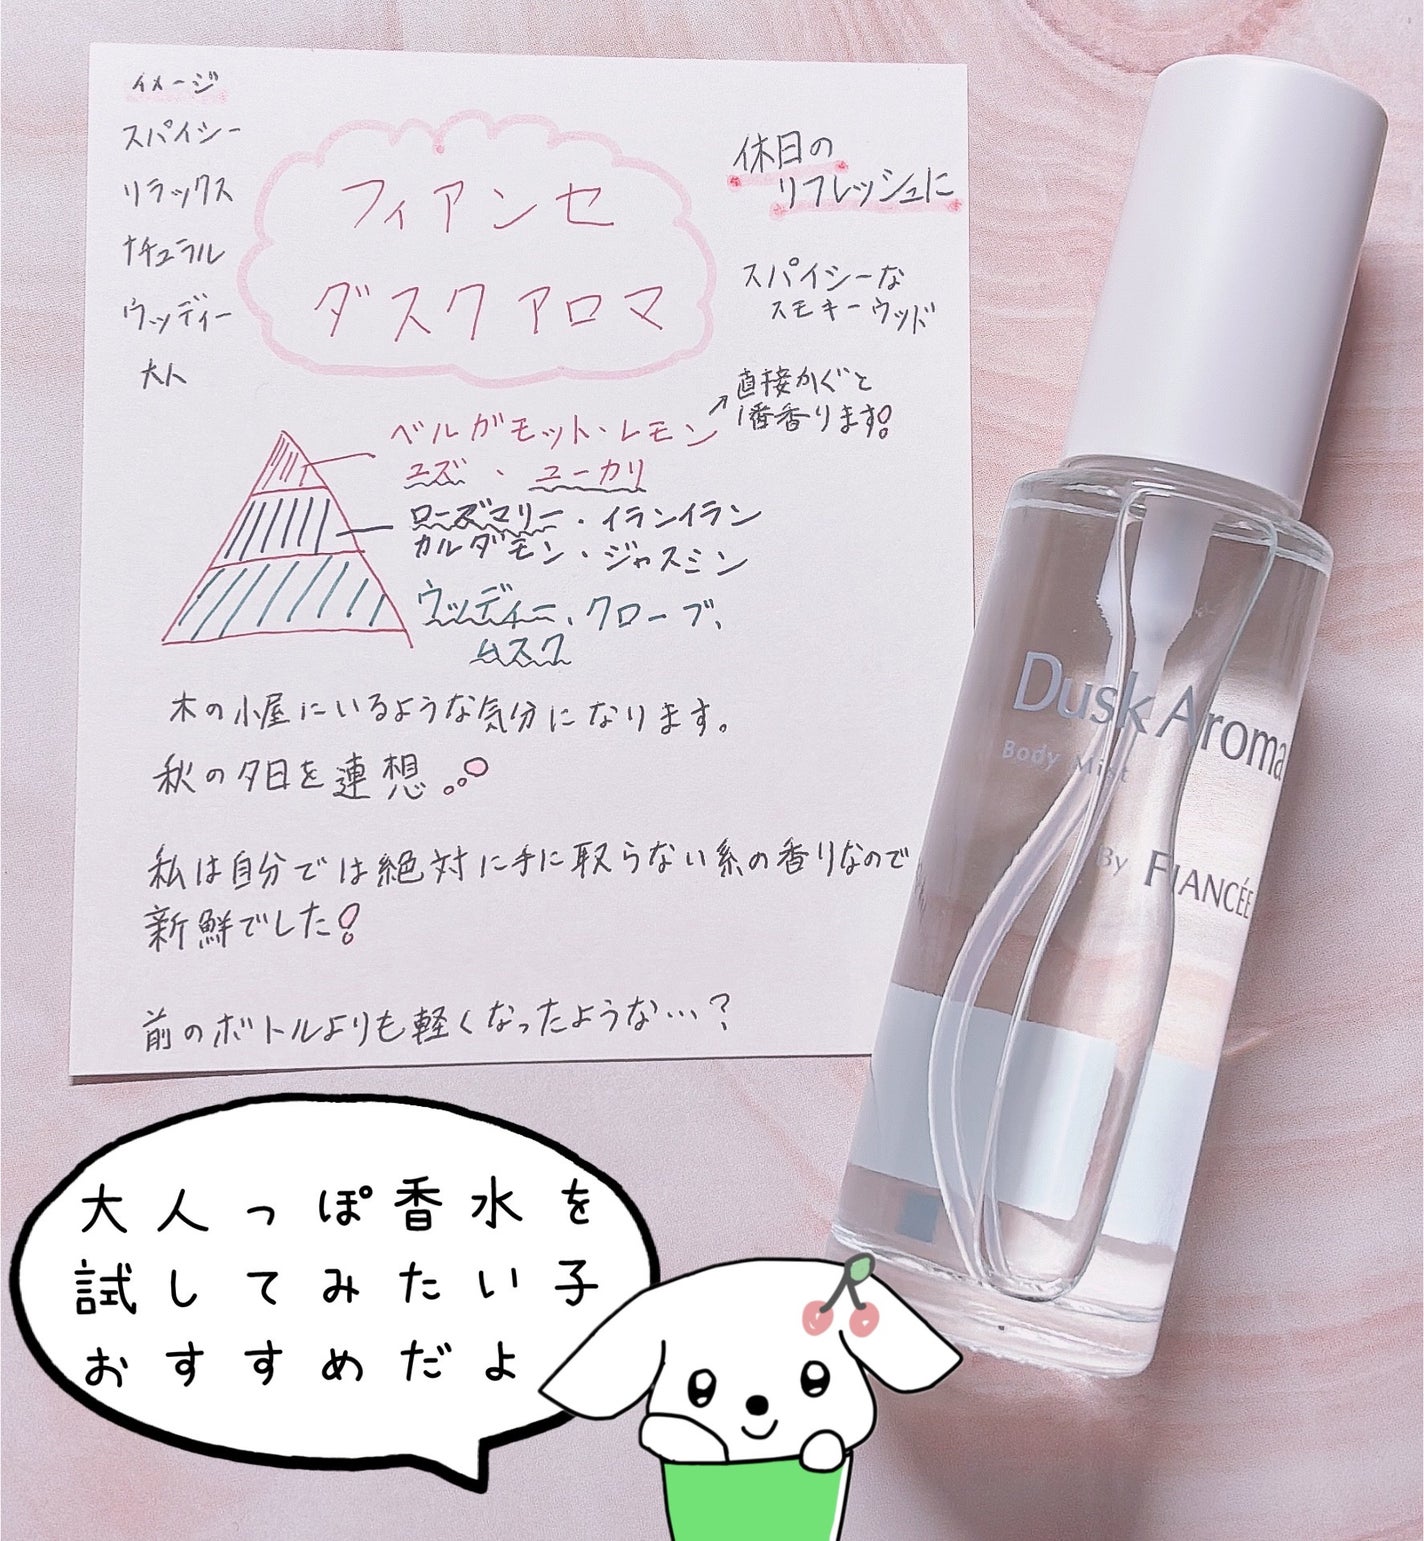 イメージ
スパイシー
リラックス
ナチュラル
ウッディー
大人
フィアンセ
ダスクアロマ
休日の
リフレッシュに
スパイシーな
スモキーウッド
直接かぐと
1番香ります!
ベルガモット・レモン
ユズ・ユーカリ
ローズマリー・イランイラン
カルダモン・ジャスミン
ウッディー、クローブ、
ムスク
木の小屋にいるような気分になります。
秋の夕日を連想
私は自分では絶対に手に取らない系の香りなので
新鮮でした!
前のボトルよりも軽くなったような…?
Dusk Aroma
Body Mist
By FIANCÉE
大人っぽ香水を
試してみたい子
おすすめだよ